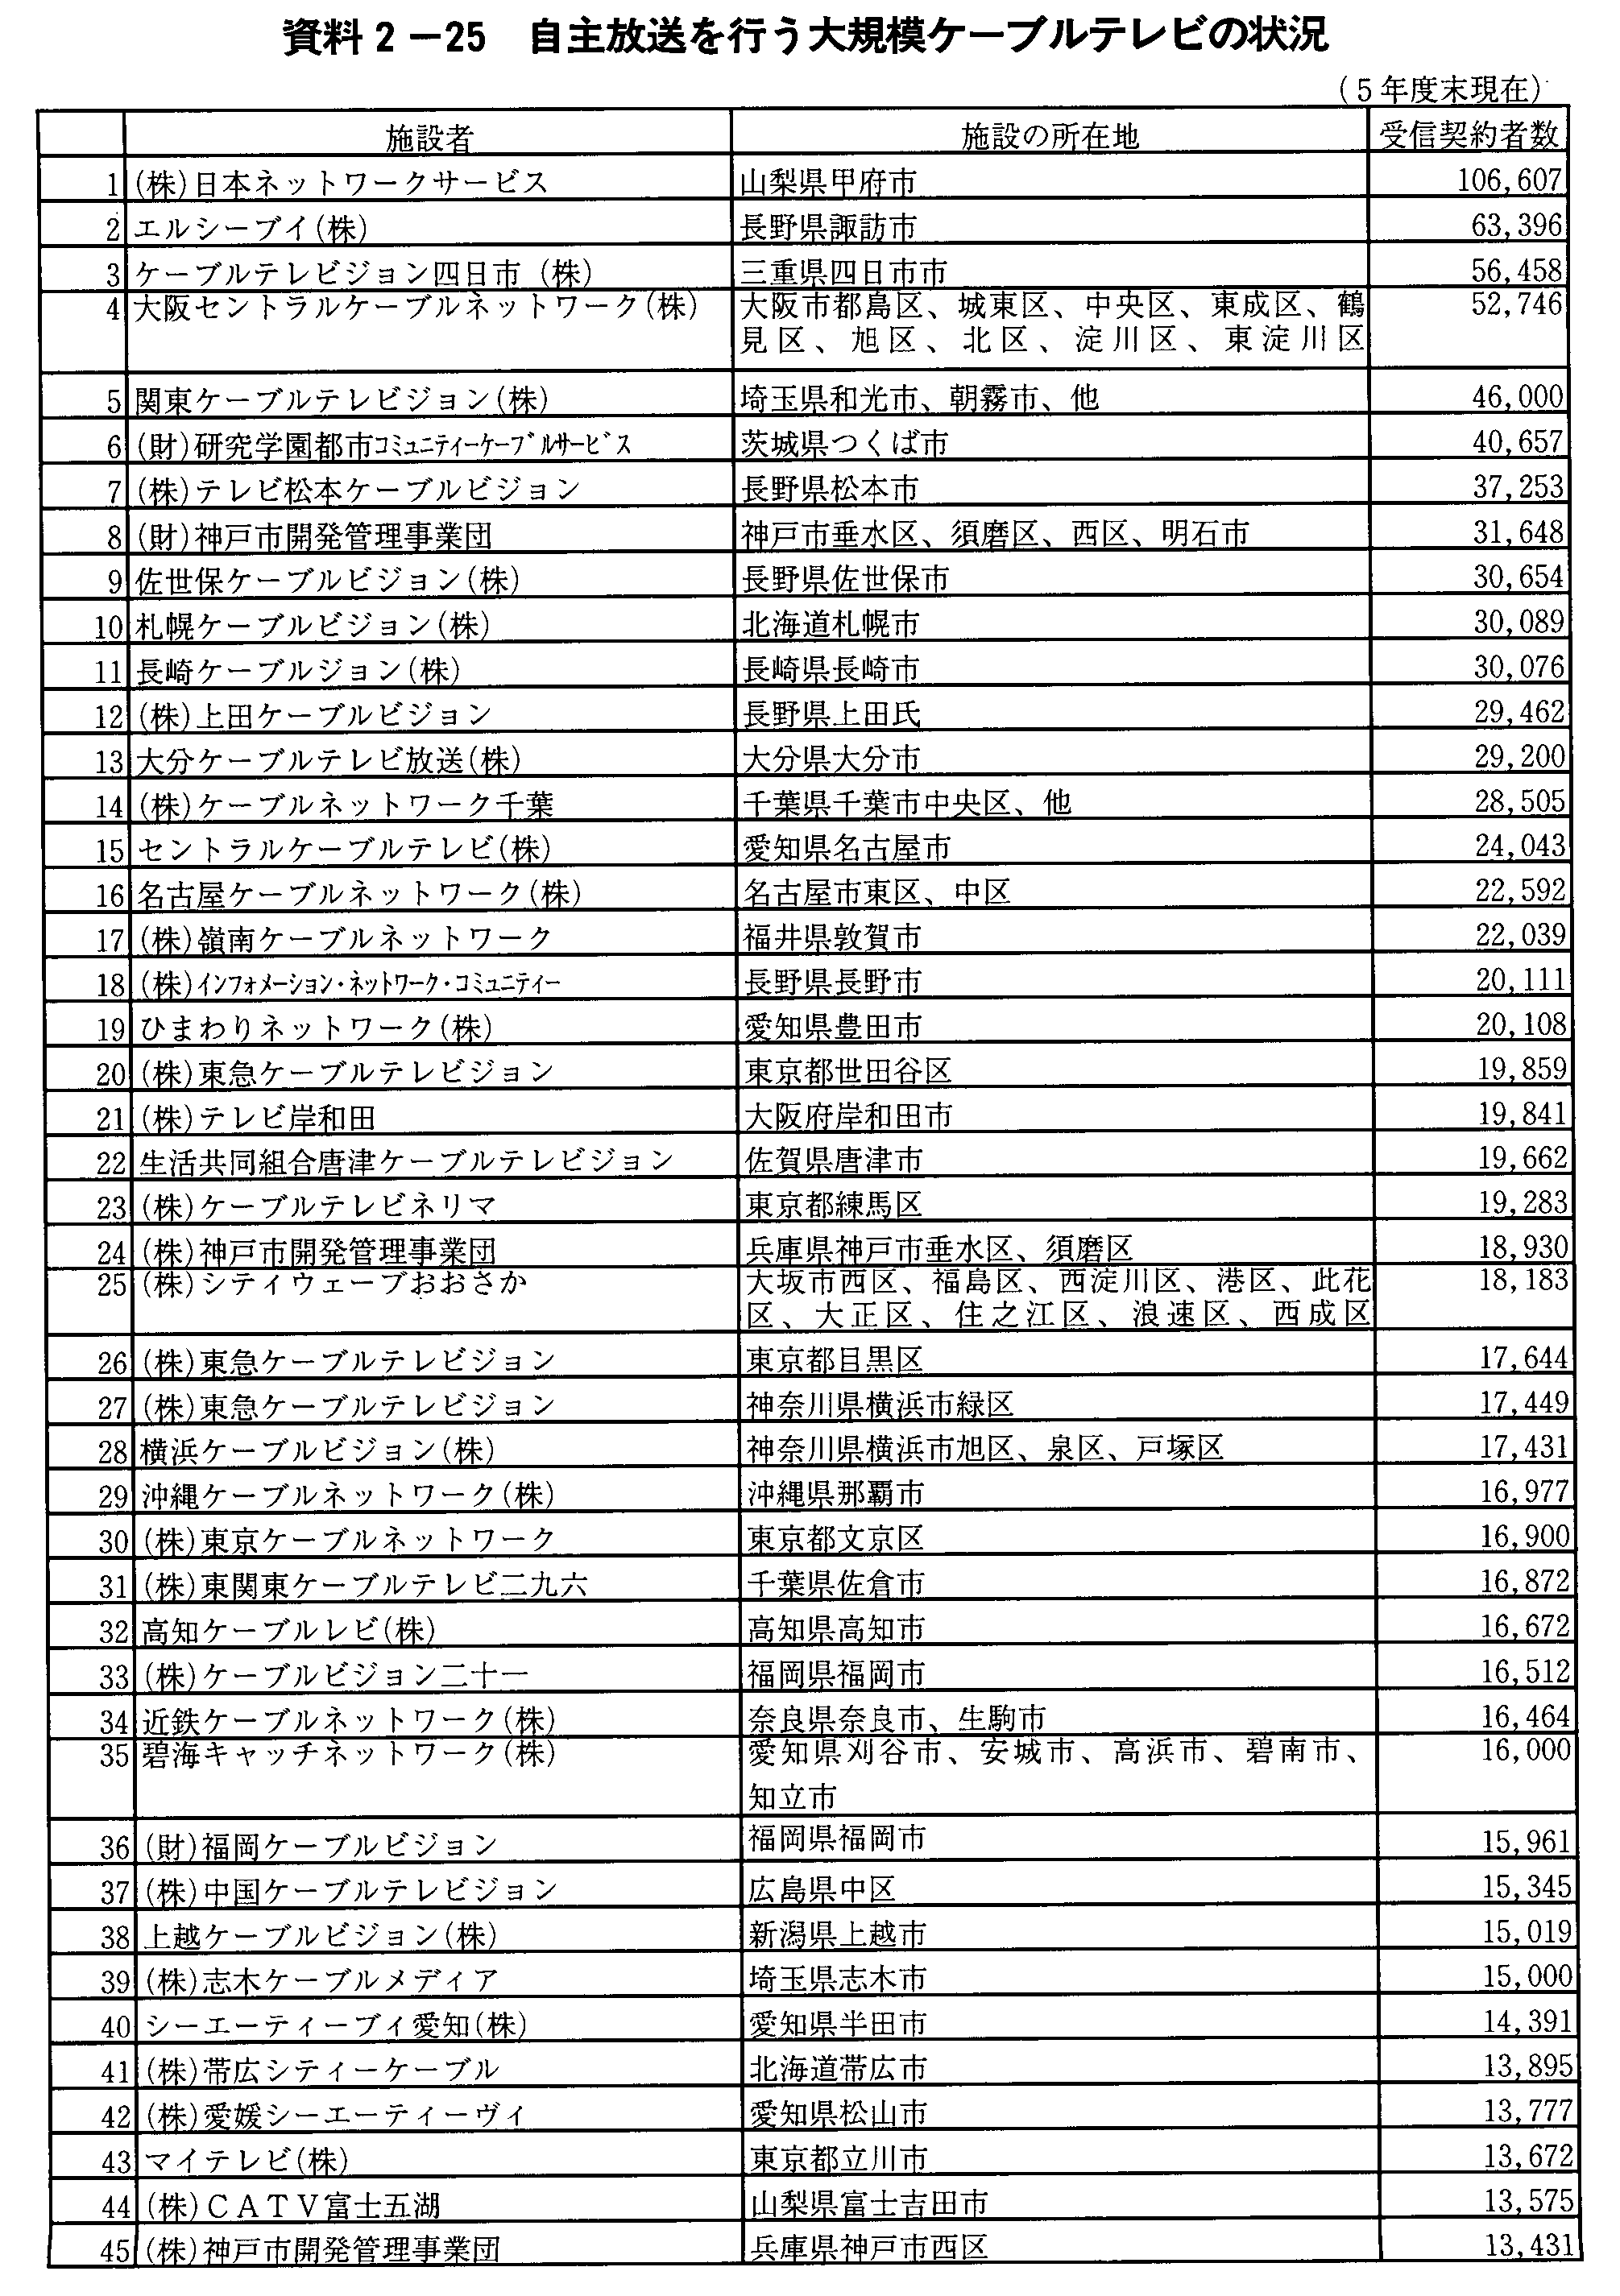 資料2-25 自主放送を行う大規模ケーブルテレビの状況
(5年度末現在)
施設者 施設の所在地 受信契約者数
1 (株)日本ネットワークサービス 山梨県甲府市 106,607
2 エルシーブイ(株) 長野県諏訪市 63,396
3 ケーブルテレビジョン四日市(株) 三重県四日市市 56,458
4 大阪セントラルケーブルネットワーク(株) 大阪市都島区、城東区、中央区、東成区、鶴 52,746
見区、旭区、北区、淀川区、東淀川区
5 関東ケーブルテレビジョン(株) 埼玉県和光市、朝霧市、他 46,000
6 (財)研究学園都市コミュニティーケーブルサービス 茨城県つくば市 40,657
7 (株)テレビ松本ケーブルビジョン 長野県松本市 37,253
8 (財)神戸市開発管理事業団 神戸市垂水区、須磨区、西区、明石市 31,648
9 佐世保ケーブルビジョン(株) 長野県佐世保市 30,654
10 札幌ケーブルビジョン(株) 北海道札幌市 30,089
11 長崎ケーブルジョン(株) 長崎県長崎市 30,076
12 (株)上田ケーブルビジョン 長野県上田氏 29,462
13 大分ケーブルテレビ放送(株) 大分県大分市 29,200
14 (株)ケーブルネットワーク千葉 千葉県千葉市中央区、他 28,505
15 セントラルケーブルテレビ(株) 愛知県名古屋市 24,043
16 名古屋ケーブルネットワーク(株) 名古屋市東区、中区 22,592
17 (株)嶺南ケーブルネットワーク 福井県敦賀市 22,039
18 (株)インフォメーション・ネットワーク・コミュニティー 長野県長野市 20,111
19 ひまわりネットワーク(株) 愛知県豊田市 20,108
20 (株)東急ケーブルテレビジョン 東京都世田谷区 19,859
21 (株)テレビ岸和田 大阪府岸和田市 19,841
22 生活共同組合唐津ケーブルテレビジョン 佐賀県唐津市 19,662
23 (株)ケーブルテレビネリマ 東京都練馬区 19,283
24 (株)神戸市開発管理事業団 兵庫県神戸市垂水区、須磨区 18,930
25 (株)シティウェーブおおさか 大坂市西区、福島区、西淀川区、港区、此花 18,183
区、大正区、住之江区、浪速区、西成区
26 (株)東急ケーブルテレビジョン 東京都目黒区 17,644
27 (株)東急ケーブルテレビジョン 神奈川県横浜市緑区 17,449
28 横浜ケーブルビジョン(株) 神奈川県横浜市旭区、泉区、戸塚区 17,431
29 沖縄ケーブルネットワーク(株) 沖縄県那覇市 16,977
30 (株)東京ケーブルネットワーク 東京都文京区 16,900
31 (株)東関東ケーブルテレビ二九六 千葉県佐倉市 16,872
32 高知ケーブルレビ(株) 高知県高知市 16,672
33 (株)ケーブルビジョン二十一 福岡県福岡市 16,512
34 近鉄ケーブルネットワーク(株) 奈良県奈良市、生駒市 16,464
35 碧海キャッチネットワーク(株) 愛知県刈谷市、安城市、高浜市、碧南市、 16,000
知立市
36 (財)福岡ケーブルビジョン 福岡県福岡市 15,961
37 (株)中国ケーブルテレビジョン 広島県中区 15,345
38 上越ケーブルビジョン(株) 新潟県上越市 15,019
39 (株)志木ケーブルメディア 埼玉県志木市 15,000
40 シーエーティーブィ愛知(株) 愛知県半田市 14,391
41 (株)帯広シティーケーブル 北海道帯広市 13,895
42 (株)愛媛シーエーティーヴィ 愛知県松山市 13,777
43 マイテレビ(株) 東京都立川市 13,672
44 (株)CATV富士五湖 山梨県富士吉田市 13,575
45 (株)神戸市開発管理事業団 兵庫県神戸市西区 13,431